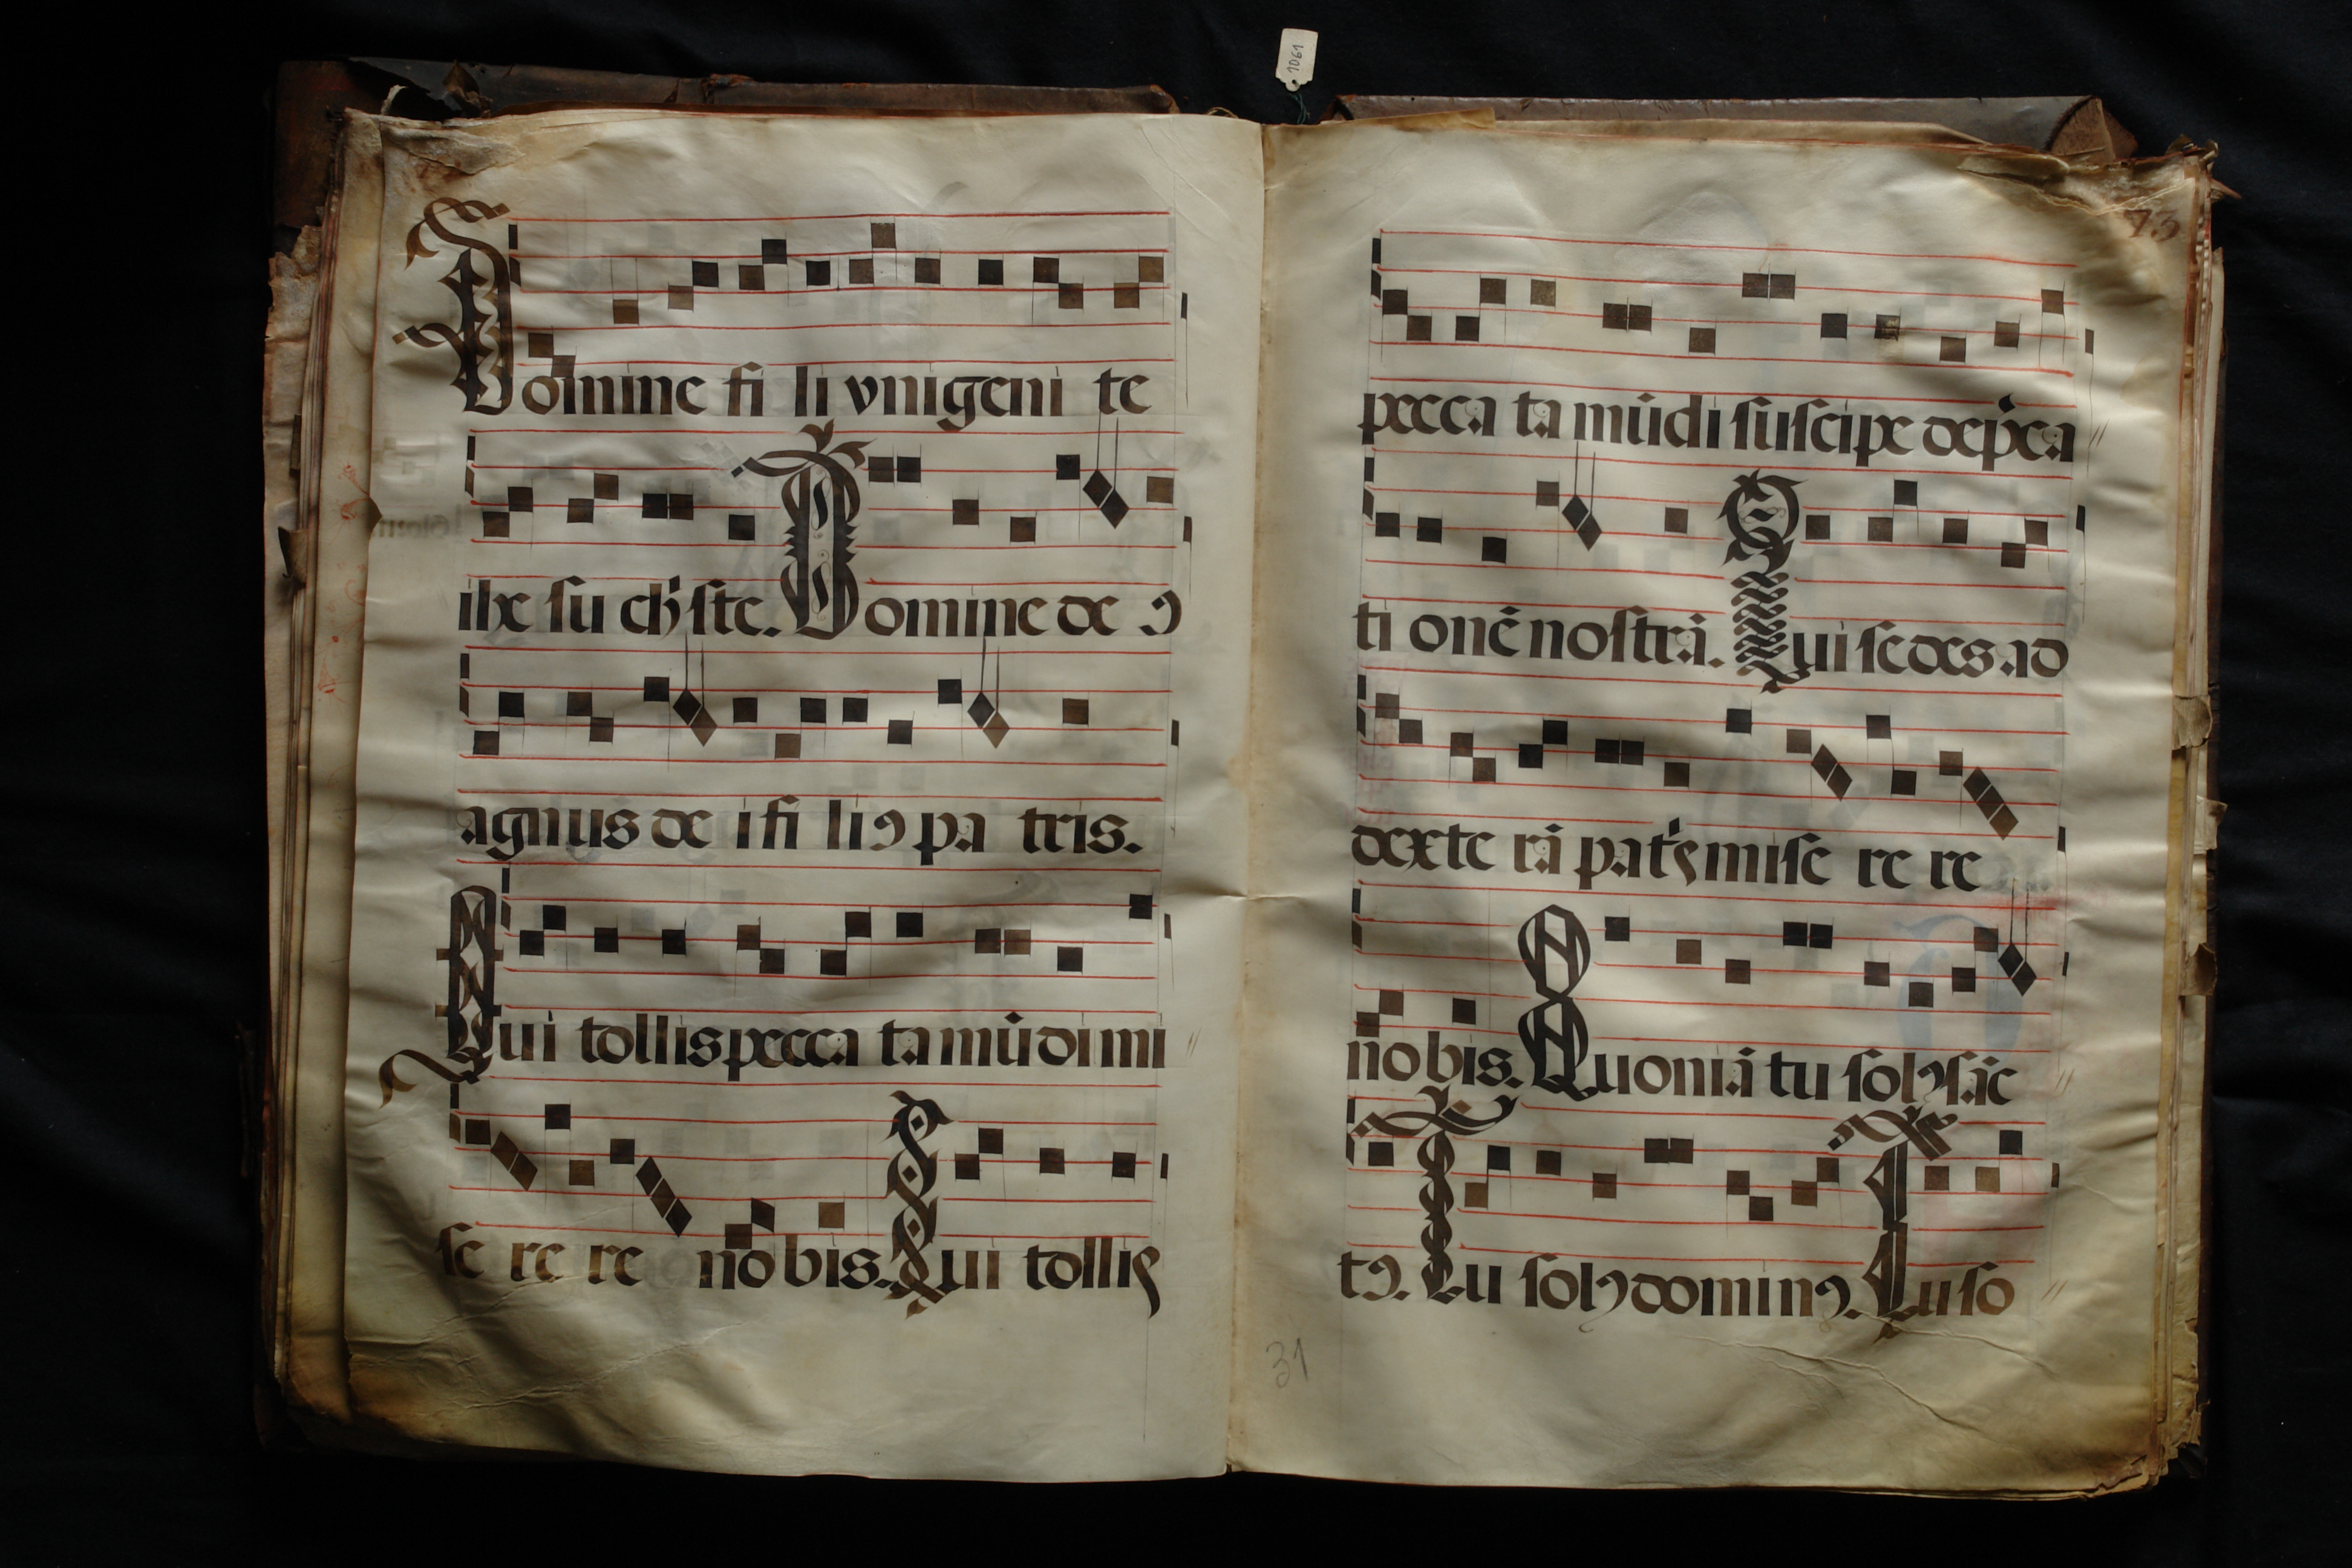 1061
Domine fi li vnigeni te
ihe su chr̄ste. Domine de ꝰ
agnus de i fi liꝰ pa tris.
Qui tollis pecca ta mūdi mi
se re re nobis. Qui tollis
73
pecca ta mūdi suscipe dep̄ca
ti onē nostrā. Qui sedes ad
dexte rā patꝭ mise re re
nobis. Quoniā tu solꝰ sāc
tꝰ. Tu solꝰ dominꝰ. Tu so
31